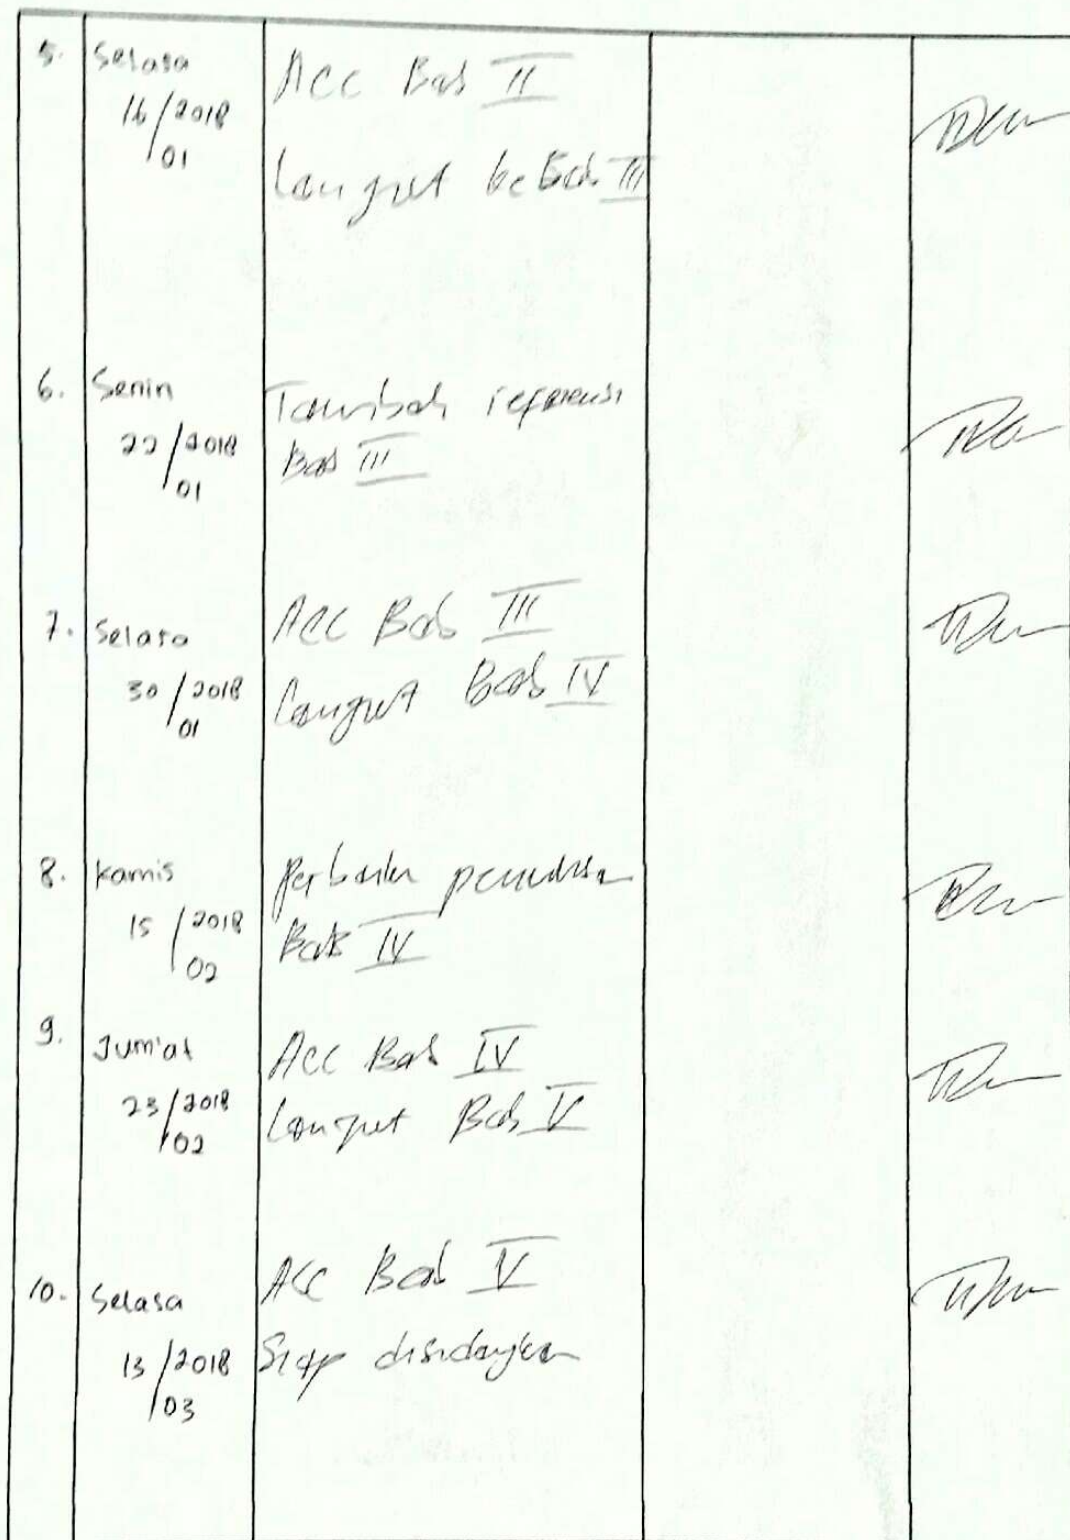 5. Selasa
16/2018
01
Acc Bab II
Lanjut ke Bab III
6. Senin
22/2018
01
Tambah referensi
Bab III
7. Selasa
30/2018
01
Acc Bab III
Lanjut Bab IV
8. Kamis
15/2018
02
Perbaiki penulisan
Bab IV
9. Jum'at
23/2018
02
Acc Bab IV
Lanjut Bab V
10. Selasa
13/2018
03
Acc Bab V
Siap disidangkan